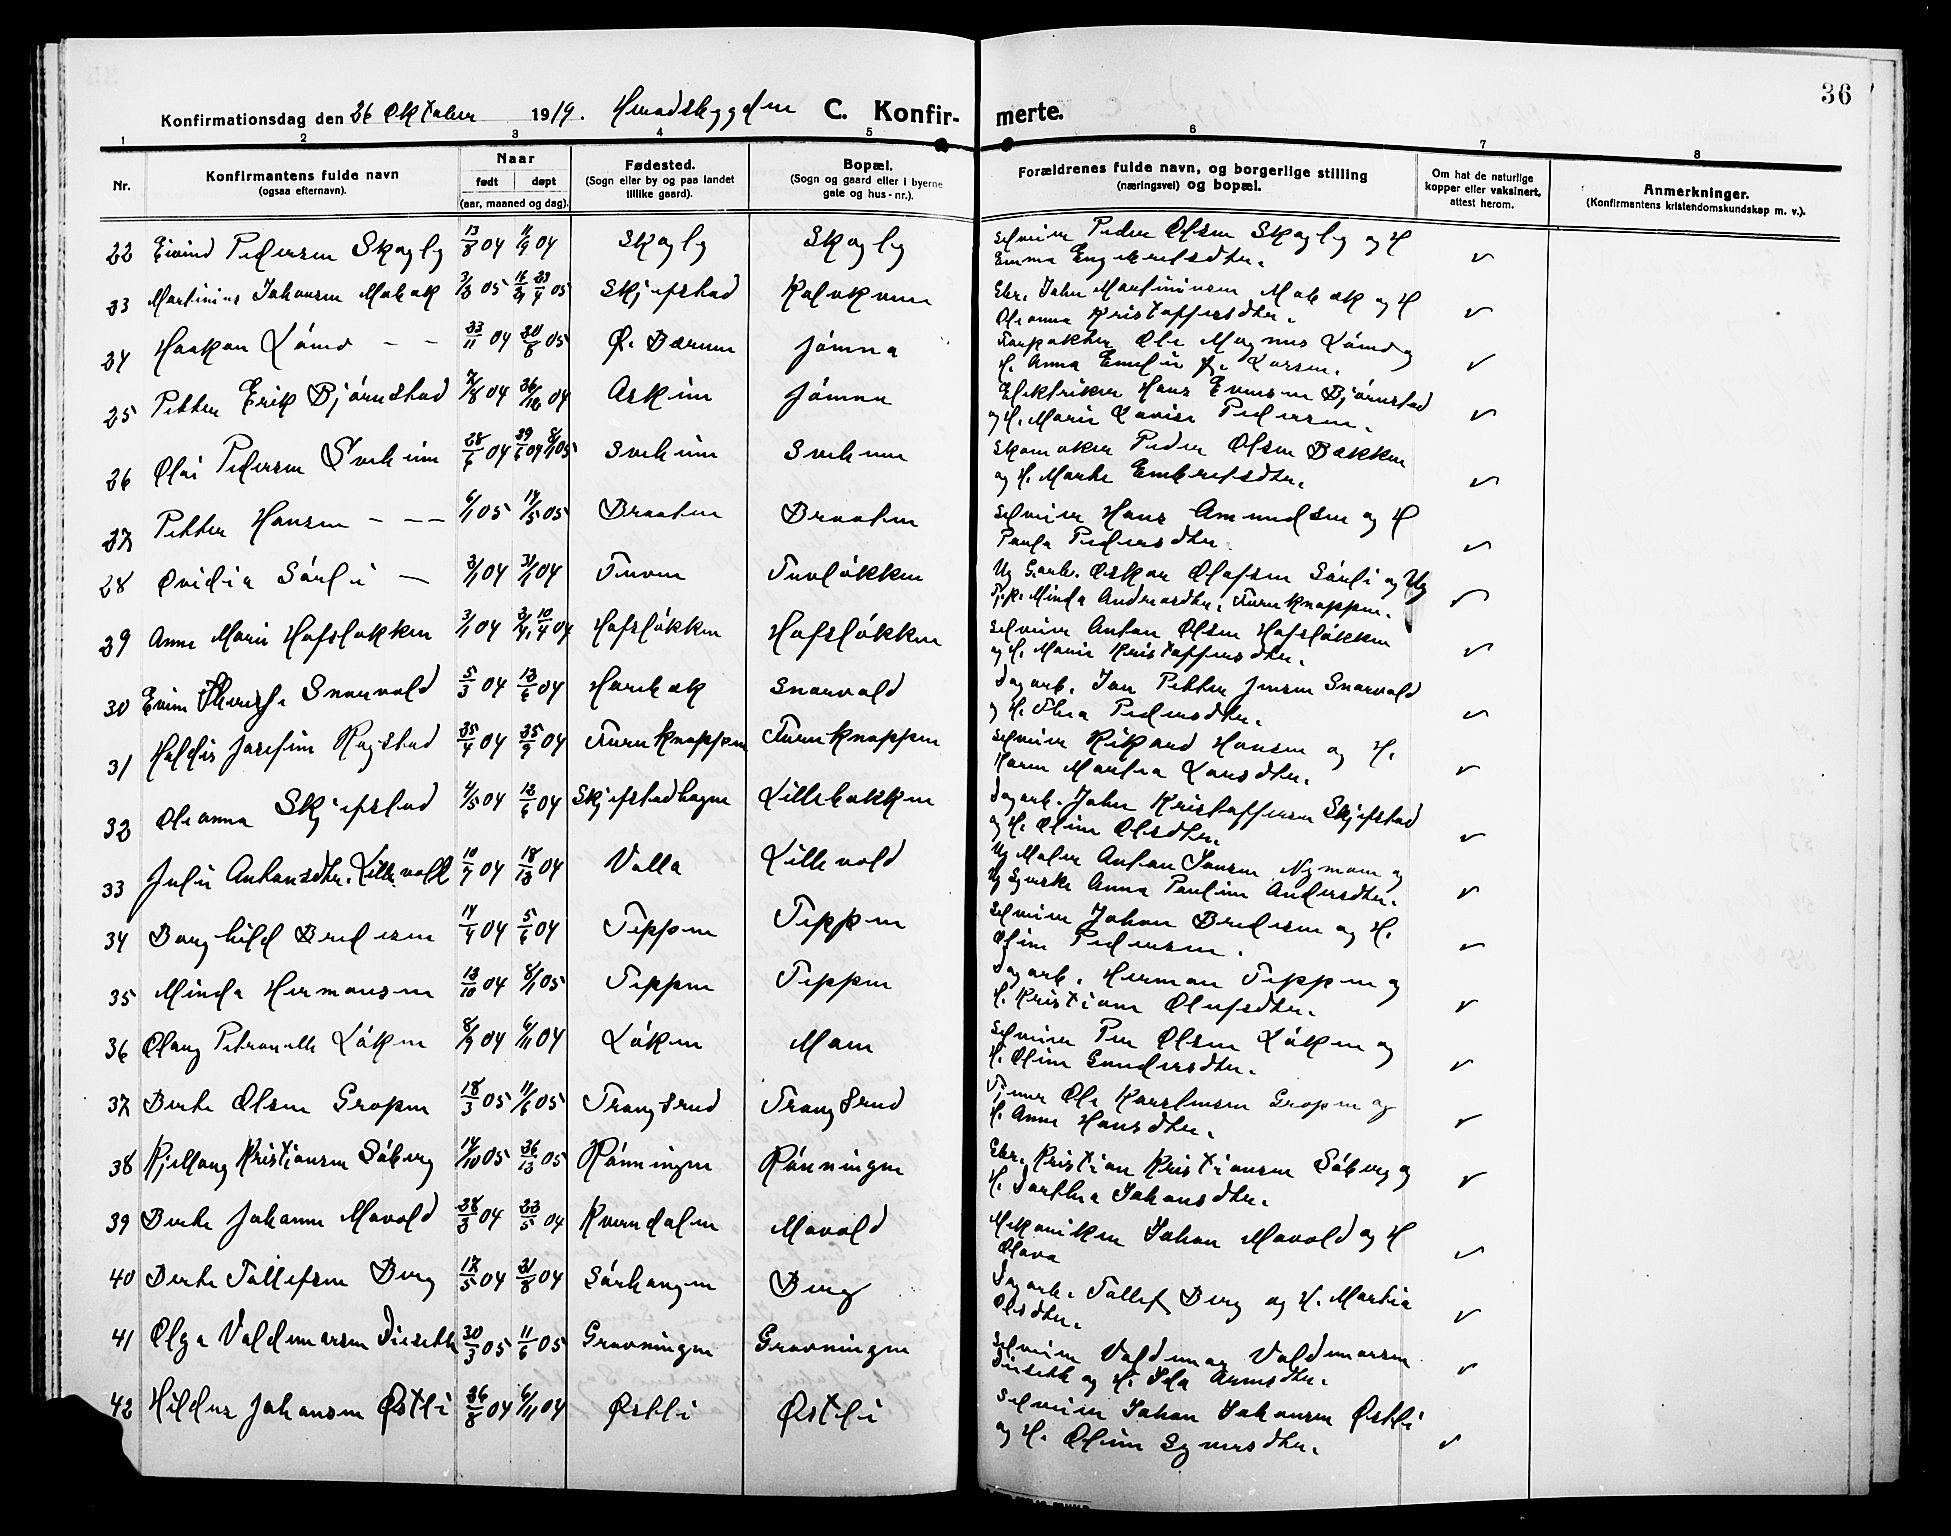 36
Konfirmationsdag den 26 Oktober 1919. Heradsbygden C. Konfirmerte.
1 2 3 4 5 6 7 8
Nr.
Konfirmantens fulde navn (ogsaa efternavn).
Naar født døpt (aar, maaned og dag).
Fødested. (Sogn eller by og paa landet tillike gaard).
Bopæl. (Sogn og gaard eller i byerne gate og hus-nr.).
Forældrenes fulde navn, og borgerlige stilling (næringsvei) og bopæl.
Om hat de naturlige kopper eller vaksinert, attest herom.
Anmerkninger. (Konfirmantens kristendomskundskap m. v.).
22 Eivind Pedersen Skogly 13/8 04 11/9 04 Skogly Skogly Selveier Peder Olsen Skogly og H
Emma Engebretsdtr. v
23 Martinius Johansen Mobæk 3/3 05 16/3 23/4 05 Skjefstad Kalvkven Gbr. Johan Martiniusen Mobæk og H
Oleanna Kristoffersdtr. v
24 Haakon Lömo - - 23/11 04 20/8 05 Ö. Bærum Jömna Forpakter Ole Magnus Lömo og
H. Anna Emilie f. Larsen. v
25 Petter Erik Bjørnstad 7/8 04 26/12 04 Askim Jömna Elektriker Hans Evensen Bjørnstad
og H. Marie Lovise Pedersen. v
26 Olai Pedersen Sveheim 28/6 04 29/6 04 8/1 05 Sveheim Sveheim Skomaker Peder Olsen Bækken
og H. Marte Embretsdtr. v
27 Petter Hansen - - - 6/1 05 14/5 05 Braaten Braaten Selveier Hans Amundsen og H
Paula Pedersdtr. v
28 Ovidia Sörli - 3/1 04 31/1 04 Tuven Tuvlökken Ug G.arb. Oskar Olafsen Sörli og Ug
Tj.p. Minda Andreasdtr. Furuknappen. v
29 Anne Marie Hofslökken 3/1 04 3/4, 10/4 04 Hofslökken Hofslökken Selveier Anton Olsen Hofslökken
og H. Marie Kristoffersdtr. v
30 Snarvold 5/3 04 12/6 04 Horebæk Snarvold Dagarb. Jon Petter Jensen Snarvold
og H. Thea Pedersdtr. v
31 Haldis Josefine Rogstad 25/4 04 25/9 04 Furuknappen Furuknappen Selveier Rikard Hansen og H.
Karen Martea Larsdtr. v
32 Oleanna Skjefstad 4/5 04 12/6 04 Skjefstadhagen Lillebakken Dagarb. John Kristoffersen Skjefstad
og H. Oline Olsdtr. v
33 Julie Antonsdtr. Lillevold 10/7 04 18/12 04 Valla Lillevold Ug Maler Anton Jonsen Nyman og
Ug Syerske Anna Pauline Andersdtr. v
34 Borghild Bredesen 14/4 04 5/6 04 Teppen Teppen Selveier Johan Bredesen og H.
Oline Pedersen. v
35 Minda Hermansen 12/10 04 8/1 05 Teppen Teppen Dagarb. Herman Teppen og
H. Kristiane Olufsdtr. v
36 Olaug Petronelle Löken 8/9 04 6/11 04 Löken Moen Selveier Per Olsen Löken og
H. Oline Gundersdtr. v
37 Berte Olsen Gropen 18/3 05 11/6 05 Trangsrud Trangsrud Tjener Ole Karelinsen Gropen og
H. Anne Hansdtr. v
38 Kjellaug Kristiansen Söberg 14/10 05 26/12 05 Rönningen Rönningen Gbr. Kristian Kristiansen Söberg og
H. Dorthea Johansdtr. v
39 Berte Johanne Movold 28/3 04 23/5 04 Kverndalen Movold Mekaniker Johan Movold og H
Olava v
40 Berte Tollefsen Berg 17/5 04 21/8 04 Sörhaugen Berg Dagarb. Tollef Berg og H. Martia
Olsdtr. v
41 Olga Valdemarsen Dieseth 30/3 05 11/6 05 Gravningen Gravningen Selveier Valdemar Valdemarsen
Dieseth og H. Ida Arnesdtr. v
42 Hildur Johansen Østli 26/8 04 6/11 04 Østli Østli Selveier Johan Johansen Østli
og H. Oline Syversdtr. v